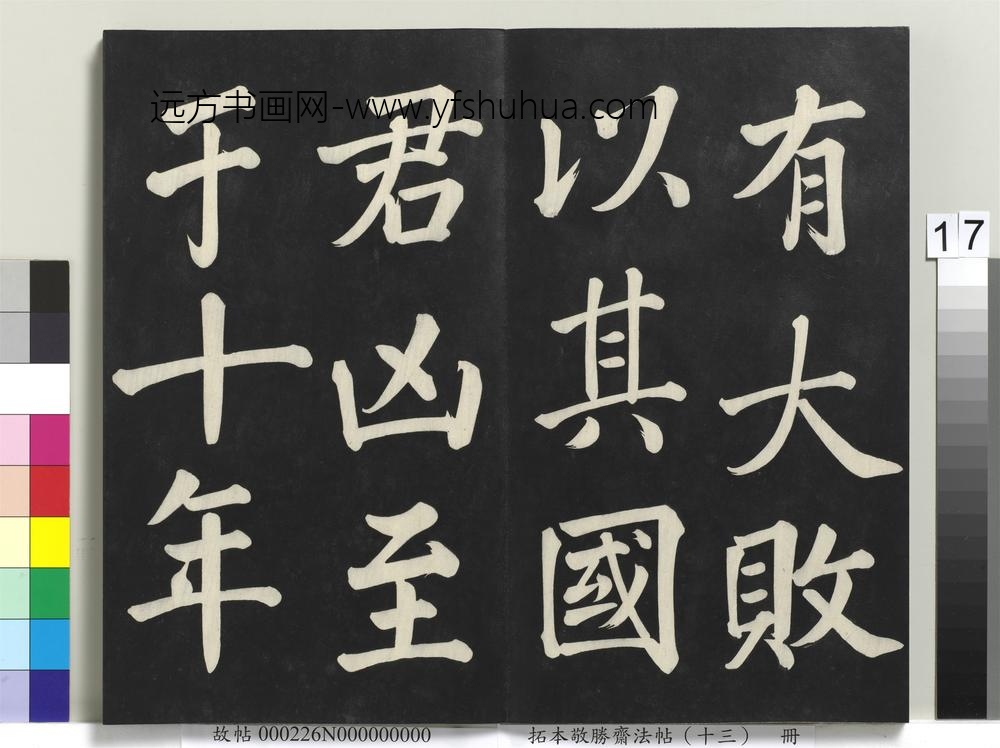 有大敗
以其國
君凶至
于十年
远方书画网-www.yfshuhua.com
17
故帖 000226N000000000
拓本敬勝齋法帖（十三） 冊